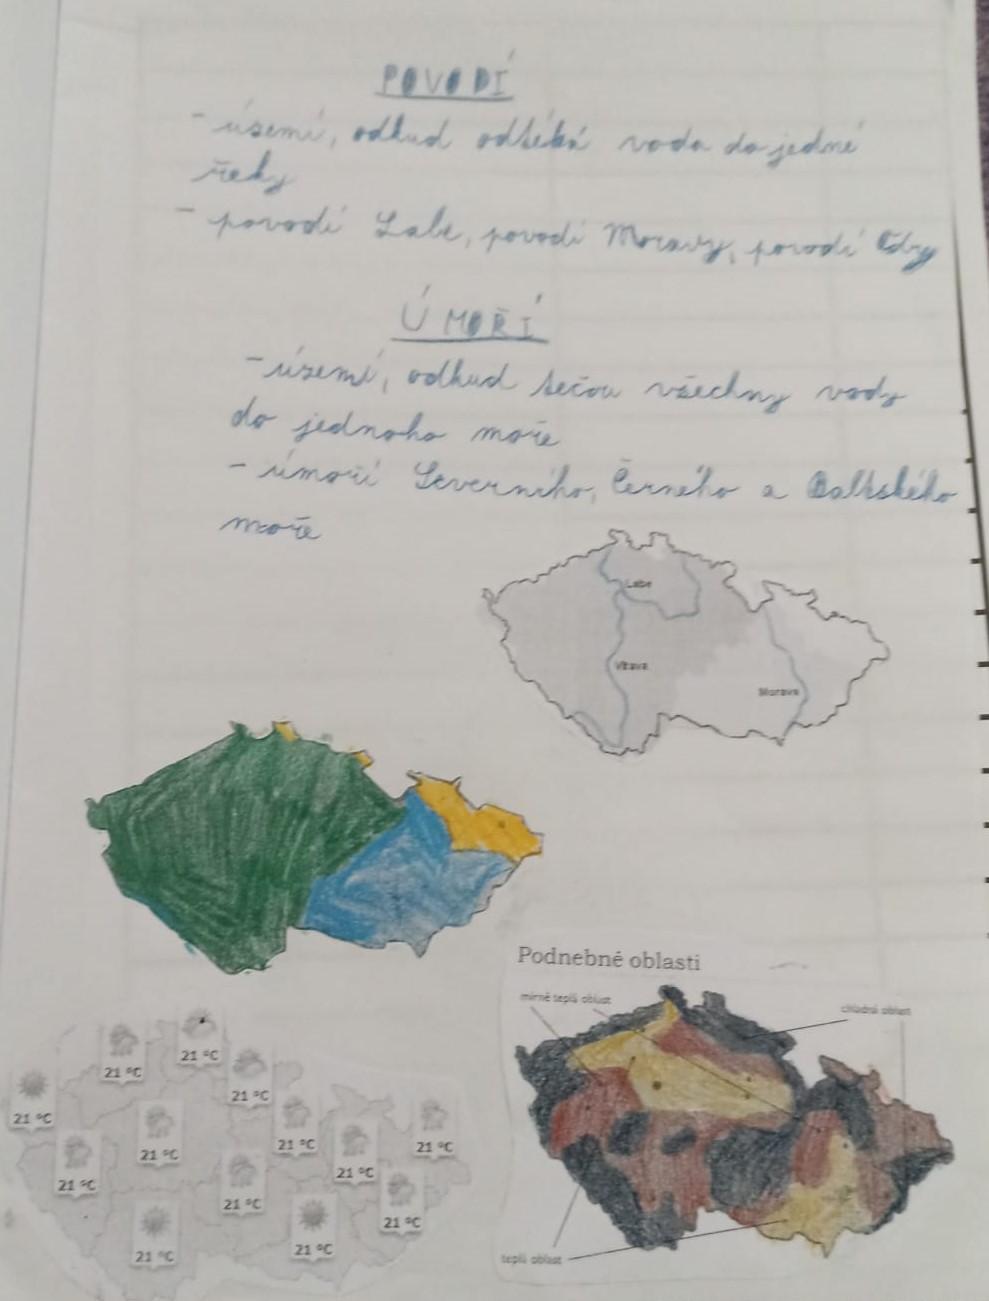 POVODÍ
- území, odkud odtéká voda do jedné
řeky
- povodí Labe, povodí Moravy, povodí Odry
ÚMOŘÍ
- území, odkud tečou všechny vody
do jednoho moře
- úmoří Severního, Černého a Baltského
moře
Labe
Vltava
Morava
Podnebné oblasti
mírně teplá oblast
chladná oblast
21 °C
21 °C
21 °C
21 °C
21 °C
21 °C
21 °C
21 °C
21 °C
21 °C
21 °C
21 °C
21 °C
teplá oblast